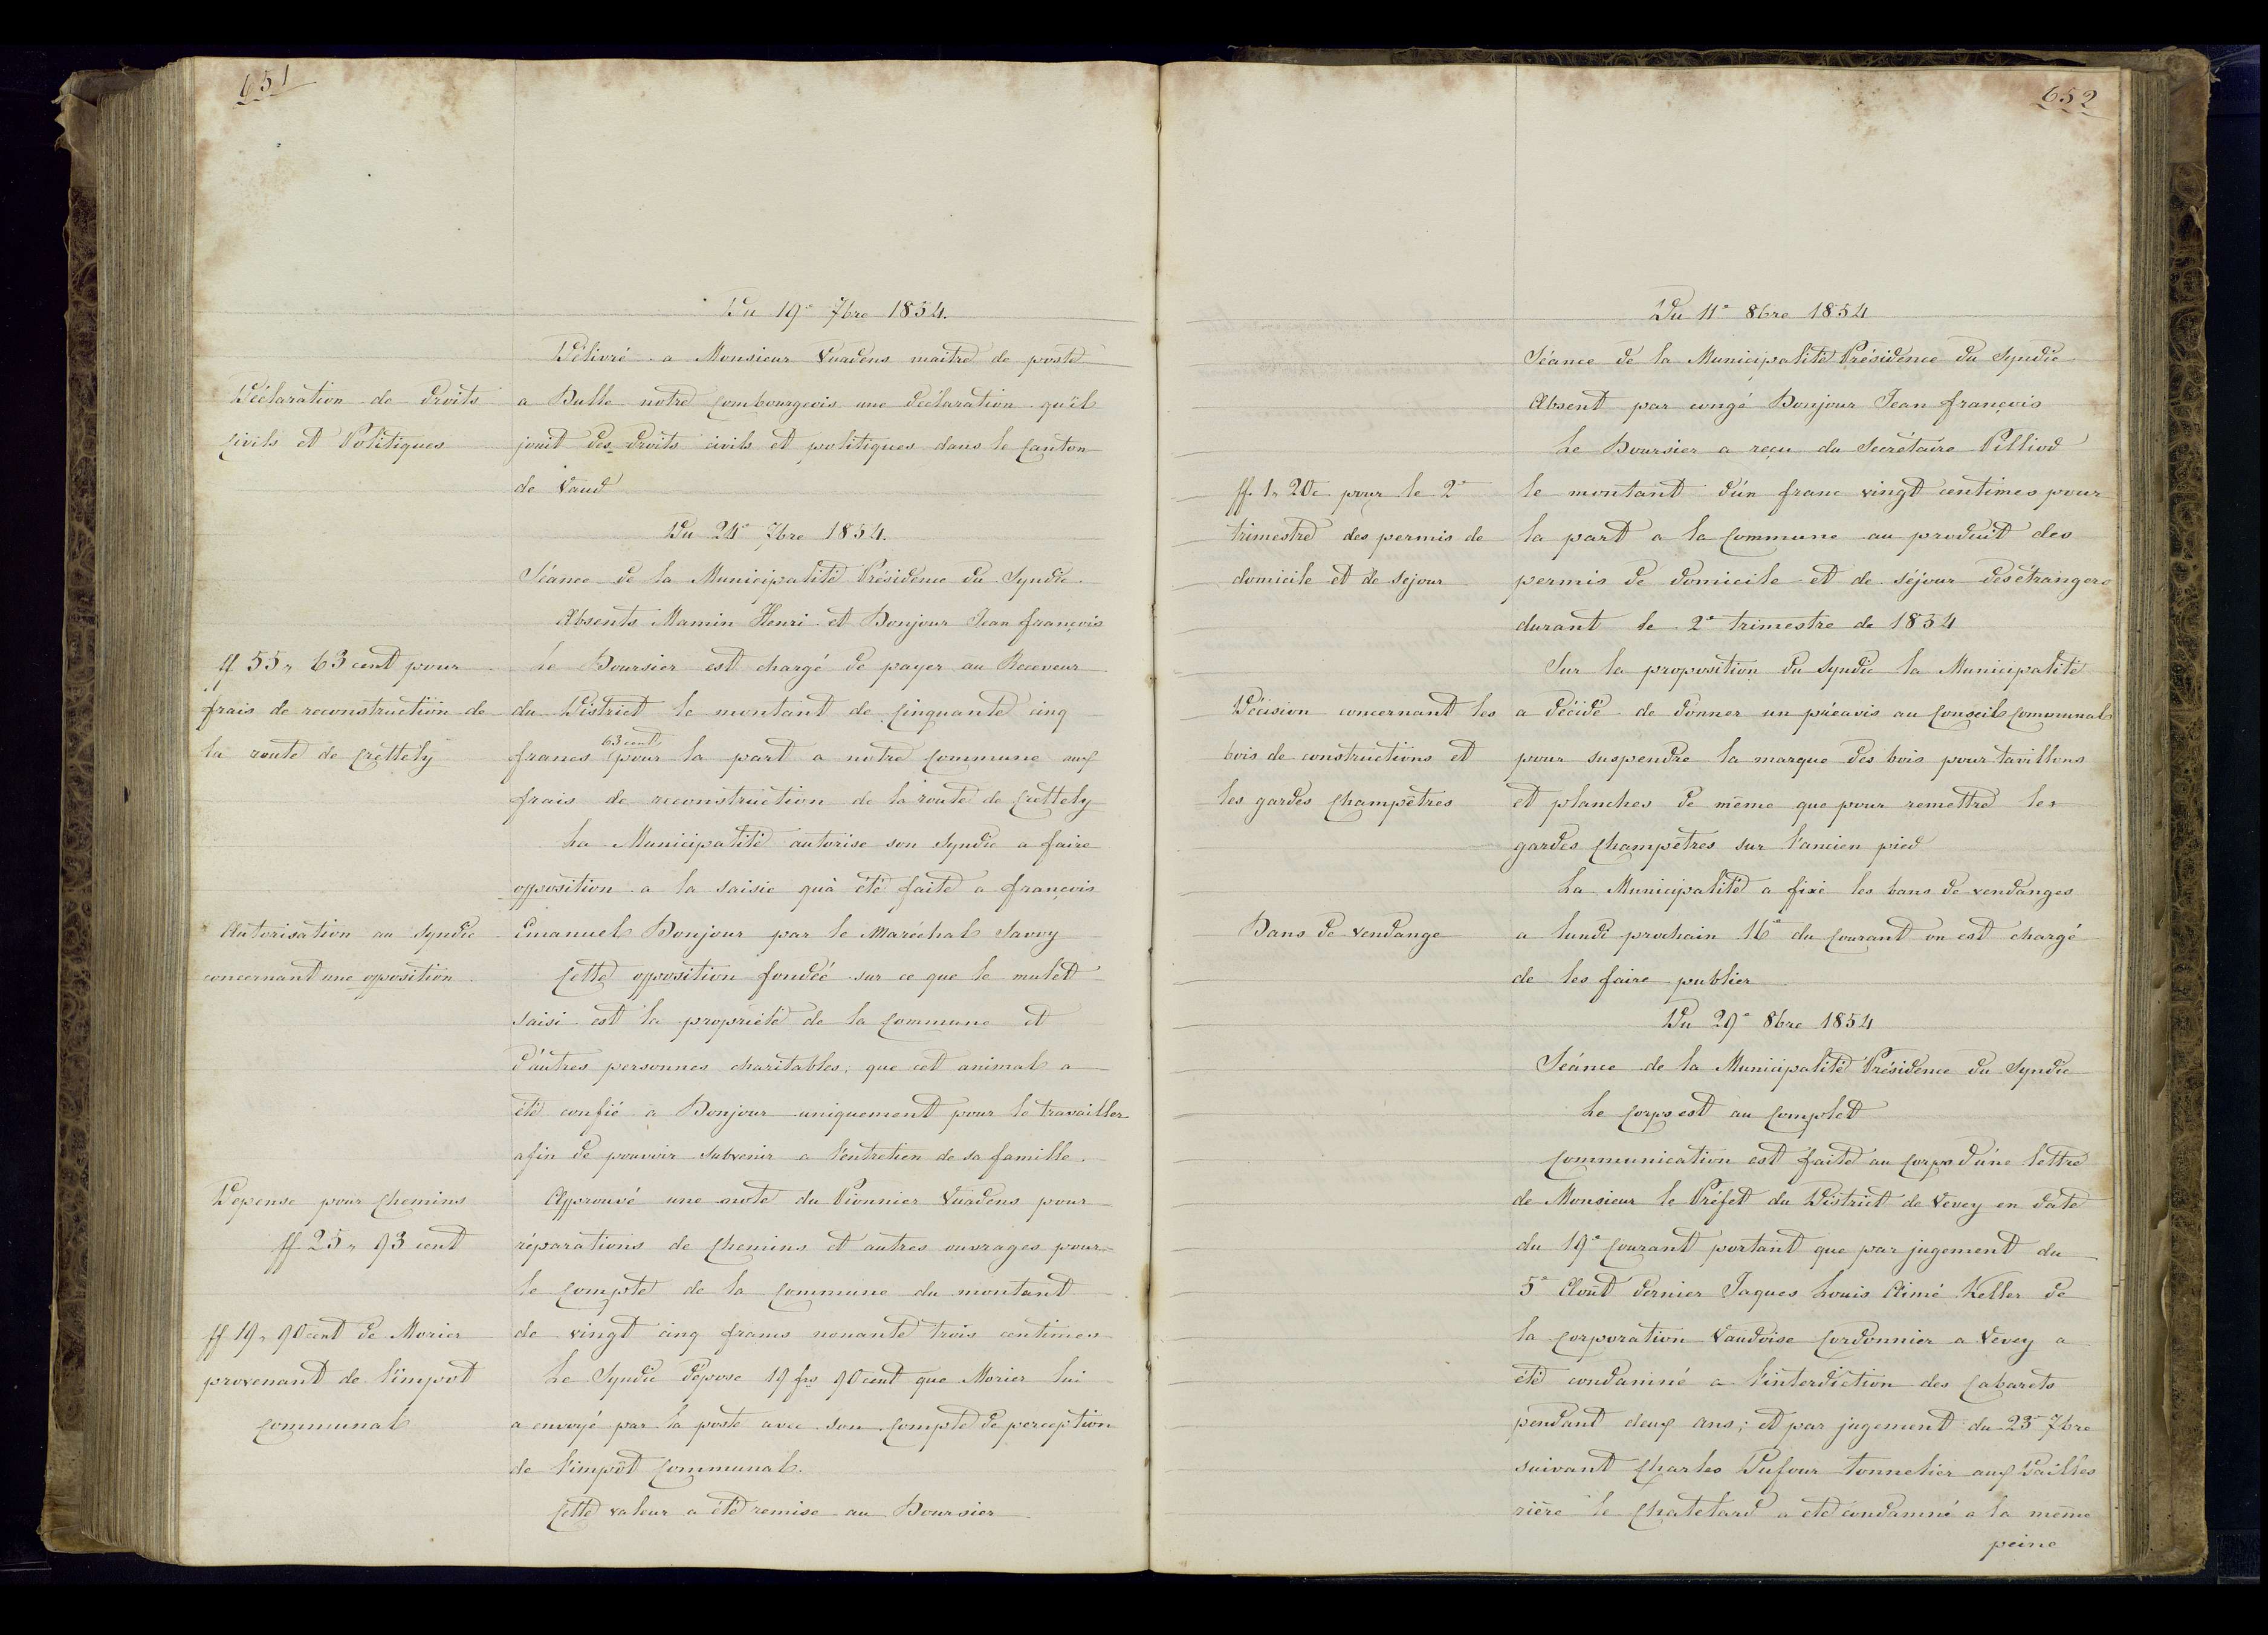 651
Du 19e 7bre 1854.
Délivré a Monsieur Vuadens maitre de poste
Déclaration de droits
a Bulle notre Combourgeois une déclaration qu'il
Civils et Politiques
jouit des droits civils et politiques dans le Canton
de Vaud
Du 24e 7bre 1854.
Séance de la Municipalité Présidence du Syndic
Absents Mamin Henri et Bonjour Jean françois
ff 55,, 63 cent pour
Le Boursier est chargé de payer au Receveur
frais de reconstruction de
du District le montant de Cinquante cinq
la route de Crettely
63 cent
francs pour la part a notre Commune aux
frais de reconstruction de la route de Crettely
La Municipalité autorise son Syndic a faire
opposition a la saisie qu'a été faite a françois
Autorisation au Syndic
Emanuel Bonjour par le Maréchal Savoy
concernant une opposition
Cette opposition fondée sur ce que le mulet
saisi est la propriété de la Commune et
d'autres personnes charitables, que cet animal a
été confié a Bonjour uniquement pour le travailler
afin de pouvoir subvenir a l'entretien de sa famille.
Depense pour Chemins
Approuvé une note du Pionnier Vuadens pour
ff 25,, 93 cent
réparations de Chemins et autres ouvrages pour
le Compte de la Commune du montant
ff 19,, 90 cent de Morier
de vingt cinq francs nonante trois centimes
provenant de l'impot
Le Syndic dépose 19 frs 90 cent que Morier lui
Communal
a envoyé par la poste avec son Compte de perception
de l'impôt Communal.
Cette valeur a été remise au Boursier
652
Du 11e 8bre 1854
Séance de la Municipalité Présidence du Syndic
Absent par congé Bonjour Jean françois
Le Boursier a reçu du Secrétaire Pilliod
ff. 1,, 20c pour le 2e
le montant d'un franc vingt centimes pour
trimestre des permis de
la part a la Commune au produit des
domicile et de séjour
permis de domicile et de séjour des étrangers
durant le 2e trimestre de 1854
Sur la proposition du Syndic la Municipalité
Décision concernant les
a décidé de donner un préavis au Conseil Communal
bois de constructions et
pour suspendre la marque des bois pour tavillons
les gardes Champêtres
et planches de même que pour remettre les
gardes Champêtres sur l'ancien pied
La Municipalité a fixé les bans de vendanges
Bans de vendange
a lundi prochain 16e du Courant on est chargé
de les faire publier
Du 29e 8bre 1854
Séance de la Municipalité Présidence du Syndic
Le Corps est au Complet
Communication est faite au Corps d'une lettre
de Monsieur le Préfet du District de Vevey en date
du 19e Courant portant que par jugement du
5e Août dernier Jaques Louis Aimé Keller de
la Corporation Vaudoise Cordonnier a Vevey a
été condamné a l'interdiction des Cabarets
pendant deux ans; et par jugement du 23e 7bre
suivant Charles Dufour tonnelier aux Vailles
rière le Chatelard a été condamné a la même
peine